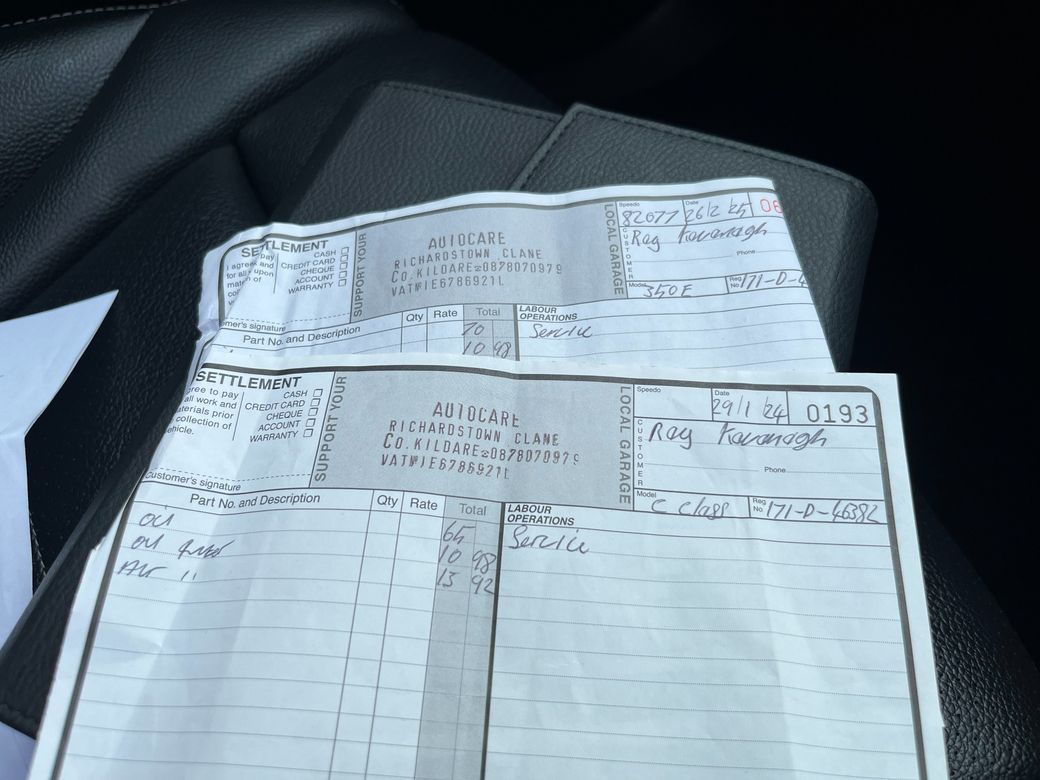 SETTLEMENT
CASH
CREDIT CARD
CHEQUE
ACCOUNT
WARRANTY
SUPPORT YOUR
AUTOCARE
RICHARDSTOWN CLANE
CO. KILDARE 0878070979
VAT№ IE6786921L
LOCAL GARAGE
Speedo
82077
Date
26/2/25
CUSTOMER
Ray Kavanagh
Phone
Model
350E
Reg No
171-D-4
Part No. and Description
Qty
Rate
Total
LABOUR OPERATIONS
70
Service
10 98
SETTLEMENT
CASH
CREDIT CARD
CHEQUE
ACCOUNT
WARRANTY
gree to pay
all work and
aterials prior
collection of
ehicle.
Customer's signature
SUPPORT YOUR
AUTOCARE
RICHARDSTOWN CLANE
CO. KILDARE 0878070979
VAT№ IE6786921L
LOCAL GARAGE
Speedo
Date
29/1/24
0193
CUSTOMER
Ray Kavanagh
Phone
Model
C Class
Reg No
171-D-46382
Part No. and Description
Qty
Rate
Total
LABOUR OPERATIONS
Oil 65
Service
Oil filter 10 98
Air " 13 92